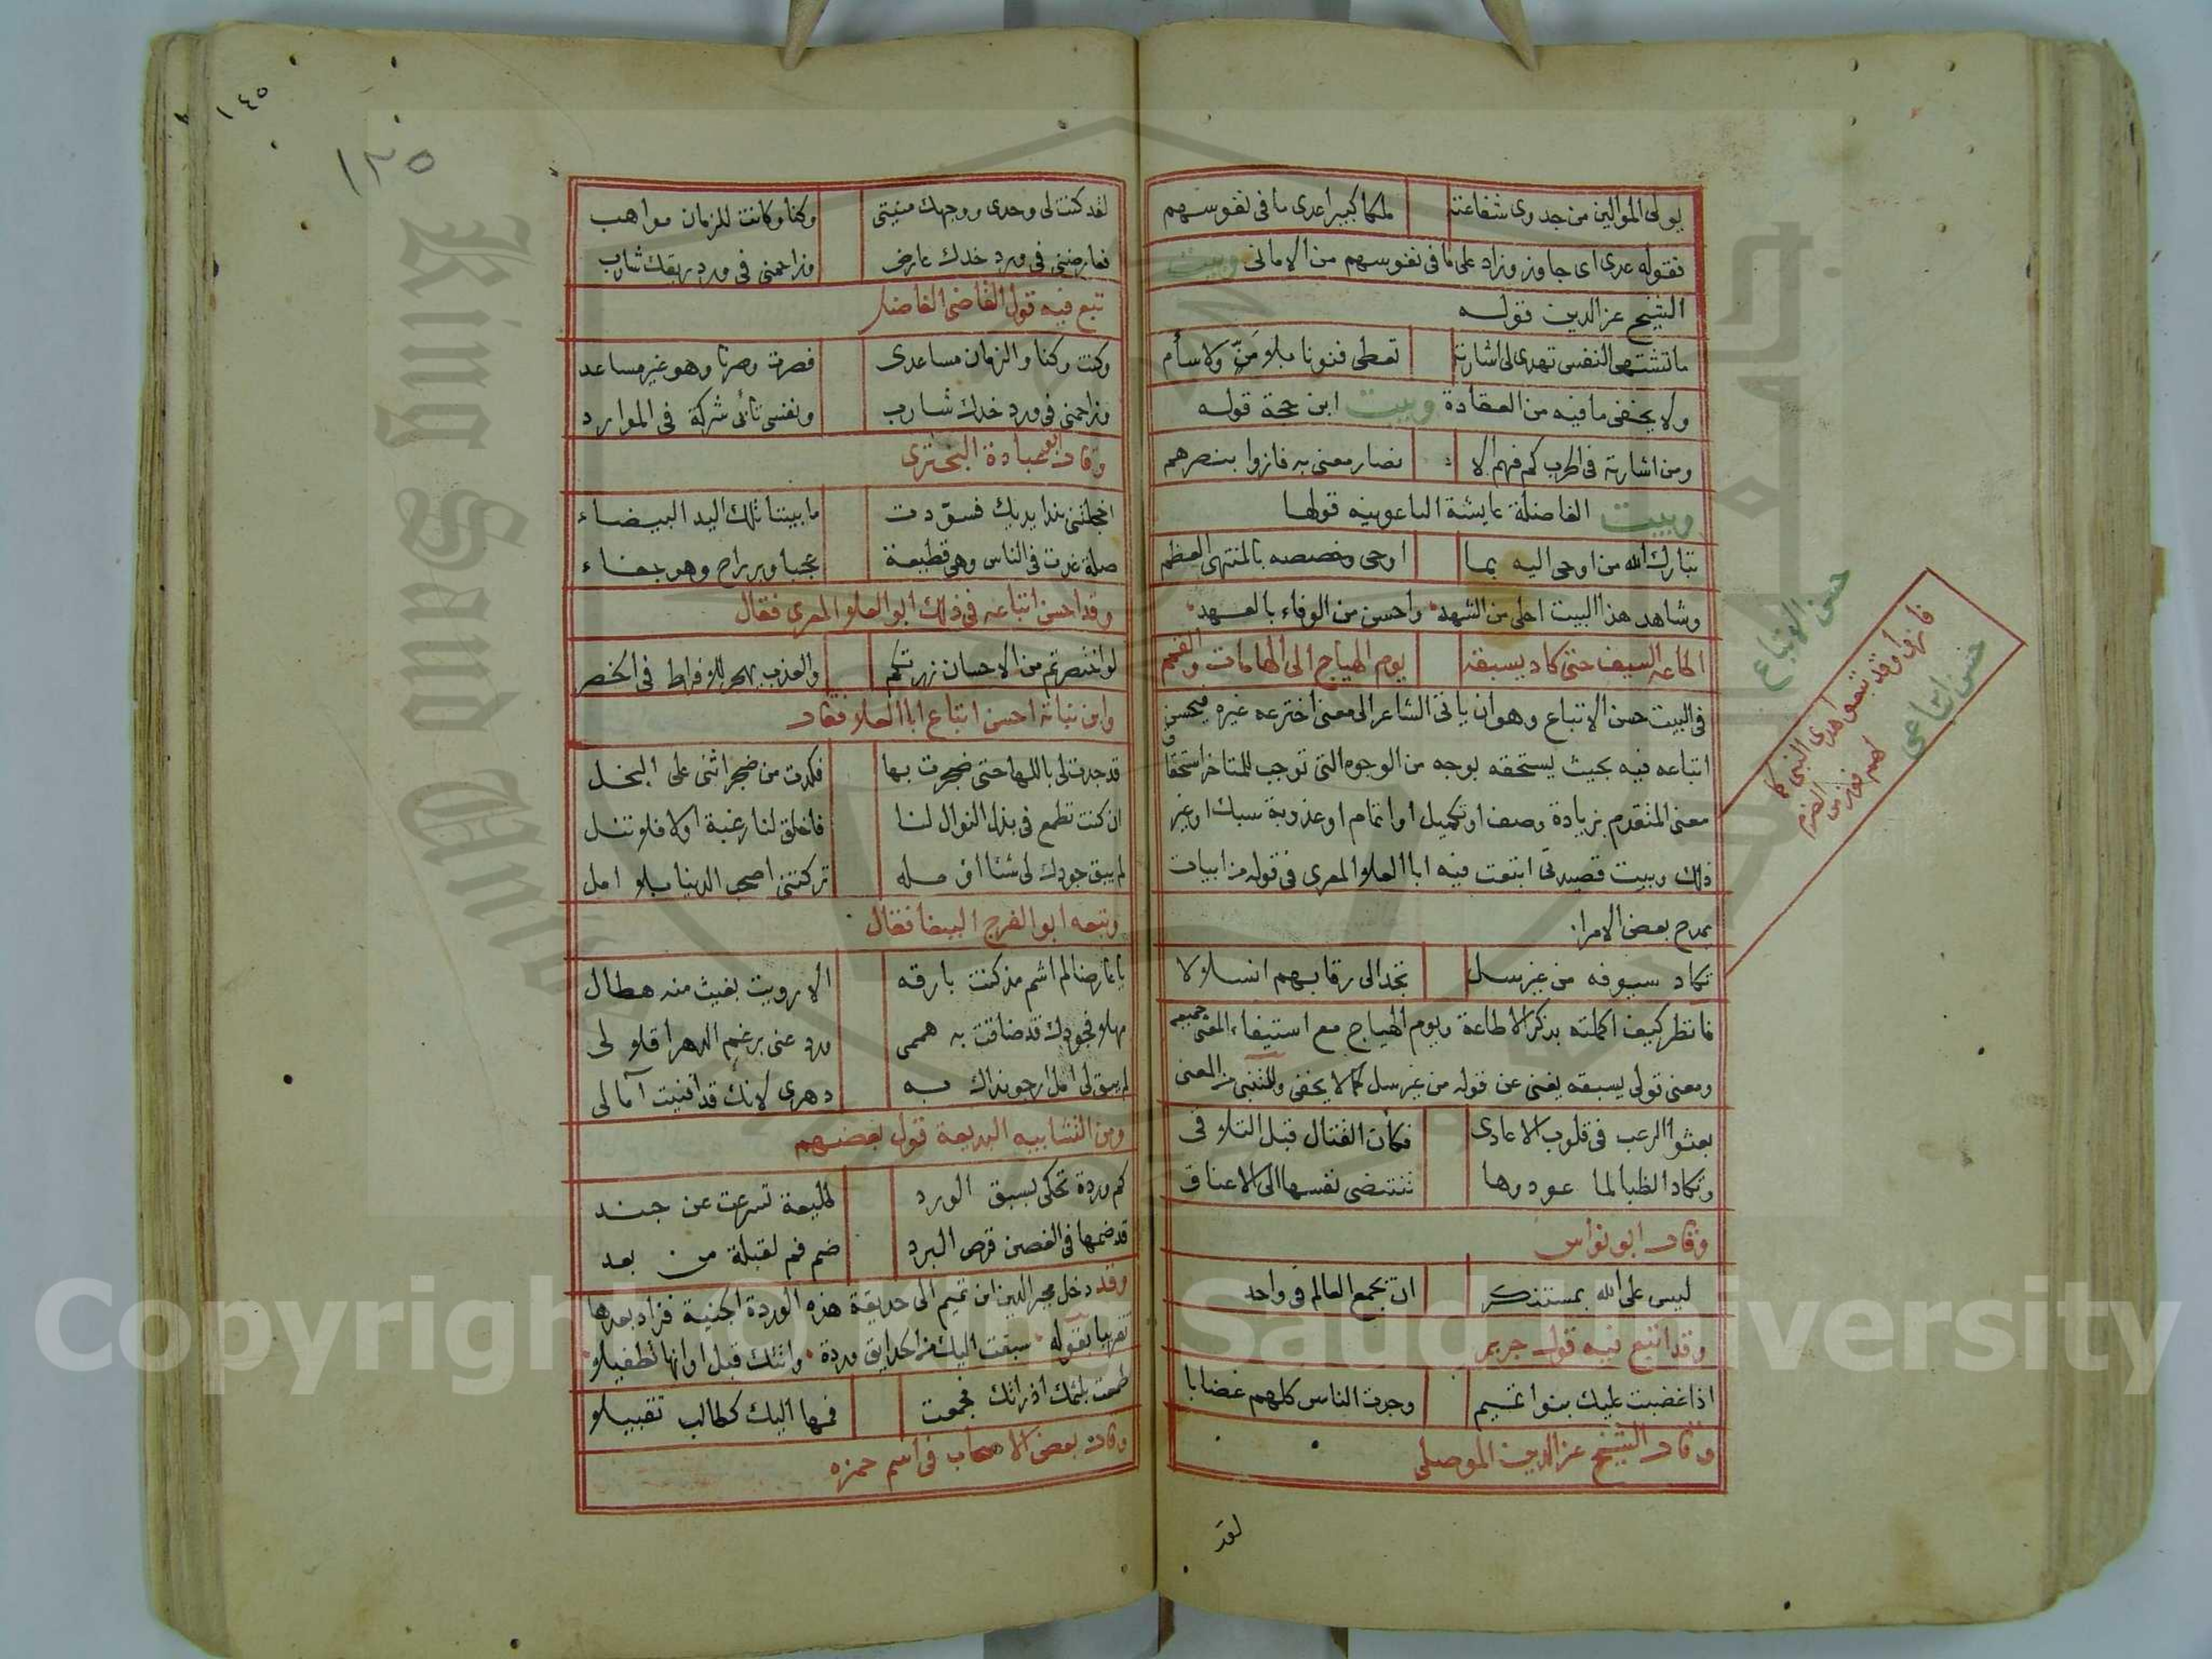 يولى الموالين من جدوى شفاعته ملكا كبيرا عدى ما فى نفوسهم
فقوله عدى اى جاوز وزاد على ما فى نفوسهم من الامانى وبيت
الشيخ عز الدين قوله
ما تشتهى النفس تهدى لى اشارته تعطى فنونا بلا منّ ولا سأم
ولا يخفى ما فيه من العقادة وبيت ابن حجة قوله
ومن اشارته فى الحرب كم فهم الا نصار معنى به فازوا بنصرهم
وبيت الفاضلة عايشة الباعونيه قولها
تبارك الله من اوحى اليه بما اوحى وخصصه بالمنتهى العظم
وشاهد هذا البيت احلى من الشهد واحسن من الوفاء بالعهد
اطاعه السيف حتى كاد يسبقه يوم الهياج الى الهامات والقمم
فى البيت حسن الاتباع وهو ان ياتى الشاعر الى معنى اخترعه غيره فيحسن
اتباعه فيه بحيث يستحقه بوجه من الوجوه التى توجب للمتاخر استحقاق
معنى المتقدم بزيادة وصف او تكميل او اتمام او عذوبة سبك او غير
ذلك وبيت قصيدتى اتبعت فيه ابا العلا المعرى فى قوله من ابيات
يمدح بعض الامرا
تكاد سيوفه من غير سل تجد الى رقابهم انسلالا
فانظر كيف اكملته بذكر الاطاعة ويوم الهياج مع استيفاء المعنى جميعه
ومعنى قولى يسبقه يغنى عن قوله من غير سل كما لا يخفى وللمتنبى من المعنى
بعثوا الرعب فى قلوب الاعادى فكأن القتال قبل التلاقى
وتكاد الظبا لما عودوها تنتضى نفسها الى الاعناق
وقال ابو نواس
ليس على الله بمستنكر ان يجمع العالم فى واحد
وقد اتبع فيه قول جرير
اذا غضبت عليك بنوا تميم وجدت الناس كلهم غضابا
وقال الشيخ عز الدين الموصلى
لقد
حسن الاتباع
حسن اتباعى
١٤٥
١٣٥
لقد كنت لى وحدى ووجهك منيتى وكنا وكانت للزمان مواهب
فعارضنى فى ورد خدك عارض وزاحمنى فى ورد ريقك شارب
تبع فيه قول القاضى الفاضل
وكنت وكنا والزمان مساعدى فصرت وصرنا وهو غير مساعد
وزاحمنى فى ورد خدك شارب ونفسى تأبى شركة فى الموارد
وقال ابو عبادة البحترى
اخجلتنى بندا يديك فسوّدت ما بيننا تلك اليد البيضاء
صلة غدت فى الناس وهى قطيعة عجبا وبر راح وهو جفاء
وقد احسن اتباعه فى ذلك ابو العلا المعرى فقال
لو اختصرتم من الاحسان زرتكم والعذب يهجر للافراط فى الخصر
وابن نباتة احسن اتباع ابا العلا فقال
قد جدت لى باللها حتى ضجرت بها فكدت من ضجر اثنى على البخل
ان كنت تطمع فى بذل النوال لنا فاخلق لنا رغبة اولا فلا تنل
لم يبق جودك لى شئا اؤمله تركتنى اصحب الدنيا بلا امل
وتبعه ابو الفرج الببغا فقال
يا عارضا لم اشم مذ كنت بارقه الا رويت بغيث منه هطال
مهلا فجودك قد ضاقت به هممى ورد عنى برغم الدهر اقلالى
لم يبق لى امل ارجو نداك به دهرى لانك قد افنيت آمالى
ومن التشابيه البديعة قول بعضهم
كم وردة تحكى بسبق الورد طليعة تسرعت عن جند
قد ضمها فى الغصن قرص البرد ضم فم لقبلة من بعد
وقد دخل مجير الدين ابن تميم الى حديقة هذه الوردة الجنية فزاد بعدها
تقريبا بقوله سبقت اليك من الحدايق وردة واتتك قبل اوانها تطفيلا
طمعت بلثمك اذ راتك فجمعت فمها اليك كطالب تقبيلا
وقال بعض الاصحاب فى اسم حمزه